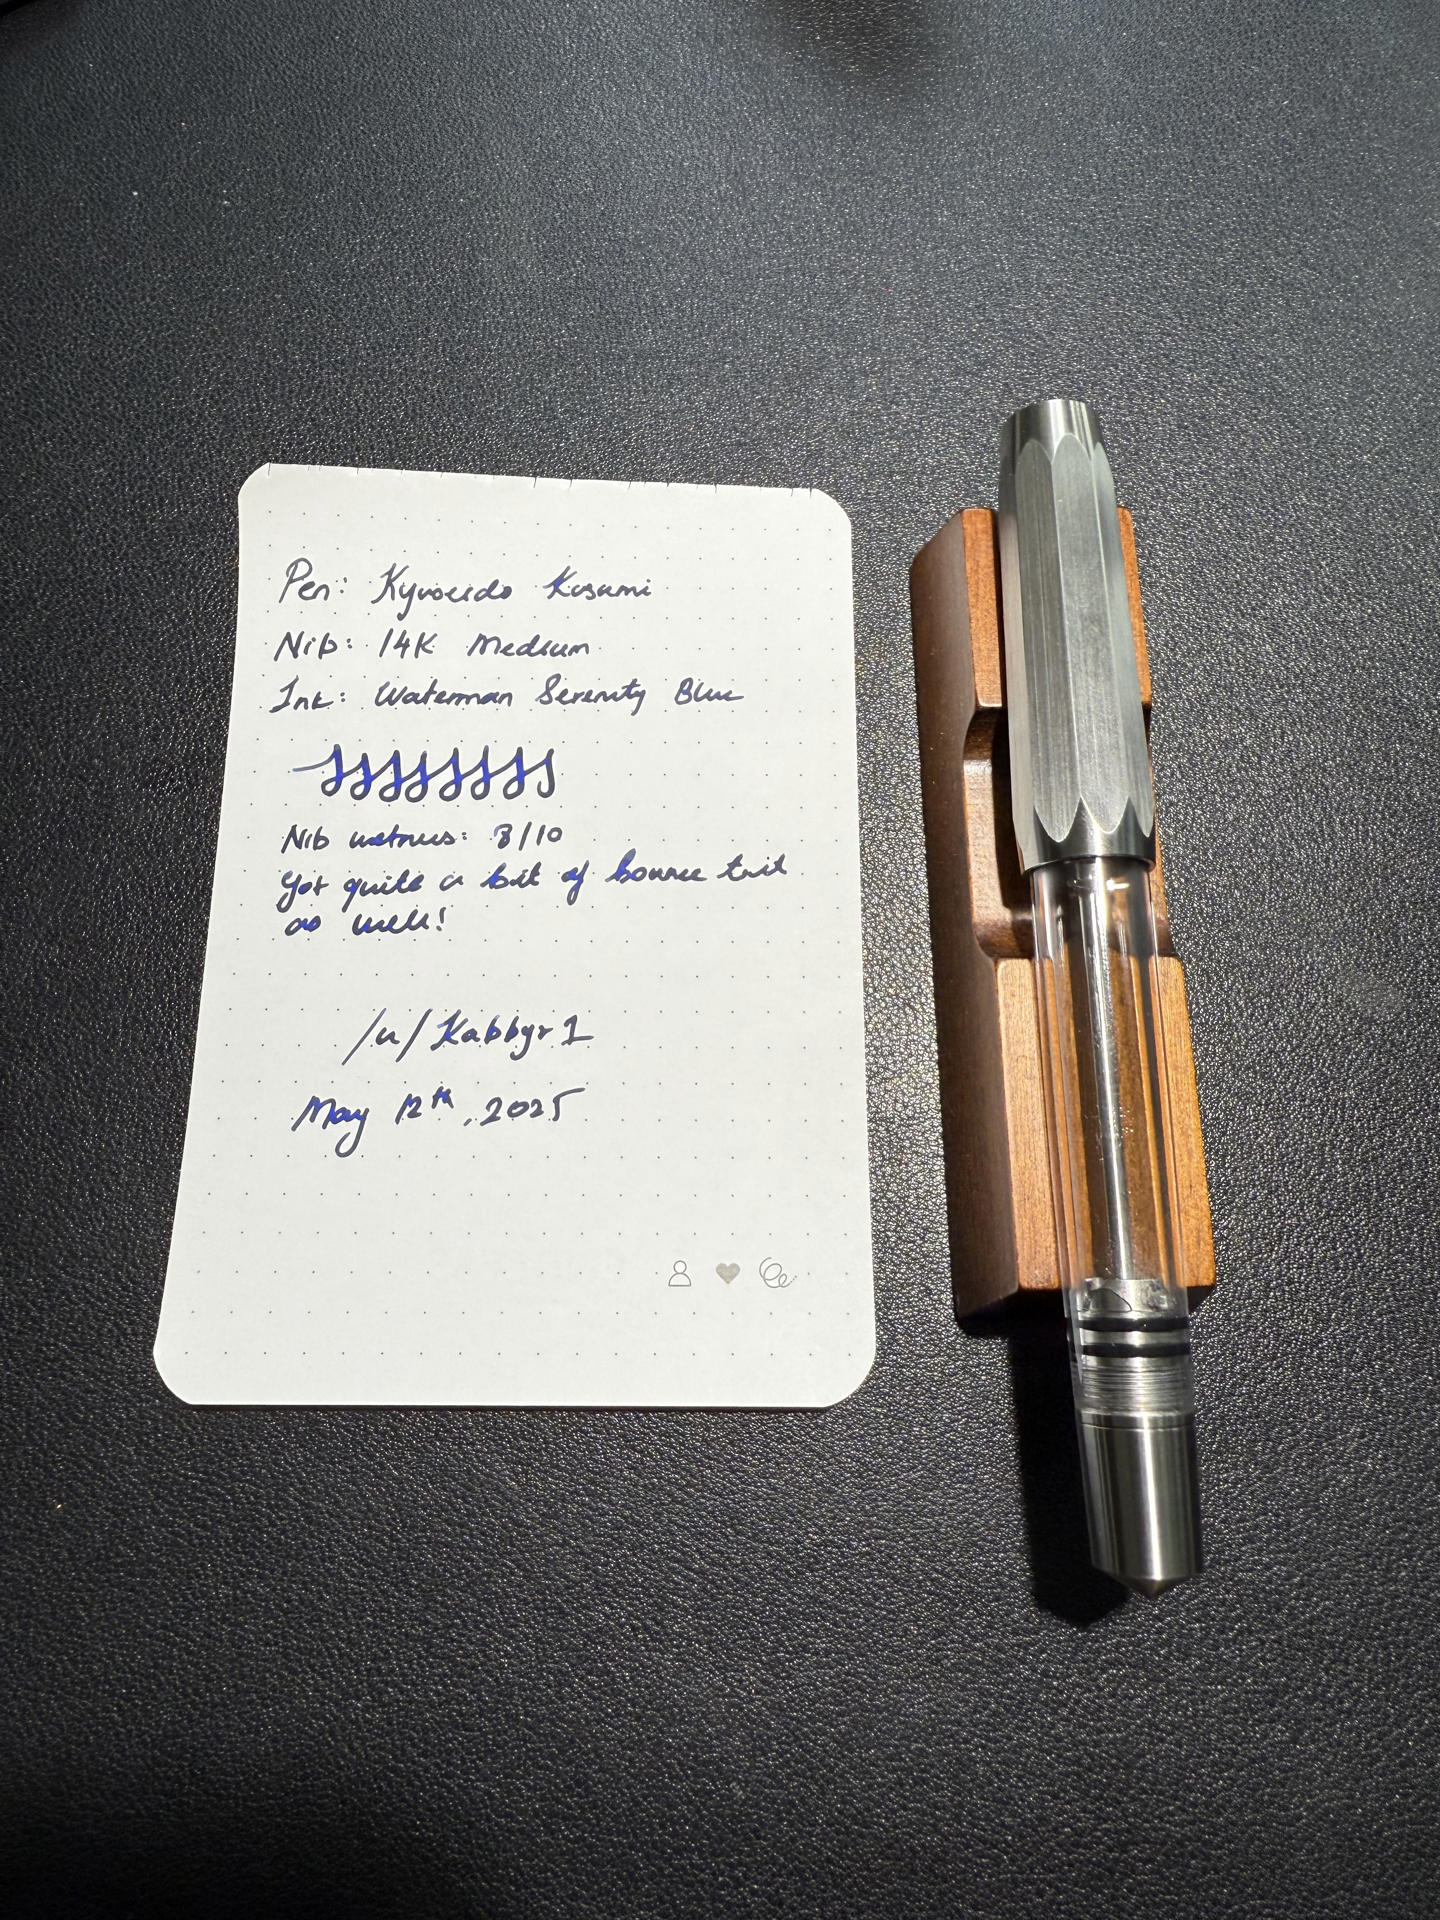 Pen: Kyuseido Kasumi
Nib: 14K Medium
Ink: Waterman Serenity Blue
Nib wetness: 8/10
Got quite a bit of bounce to it
as well!
/u/Kabbyr1
May 12th, 2025